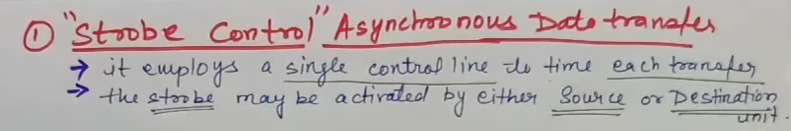 ① "Strobe Control" Asynchronous Data transfer
→ it employs a single control line to time each transfer
→ the strobe may be activated by either Source or Destination
unit.